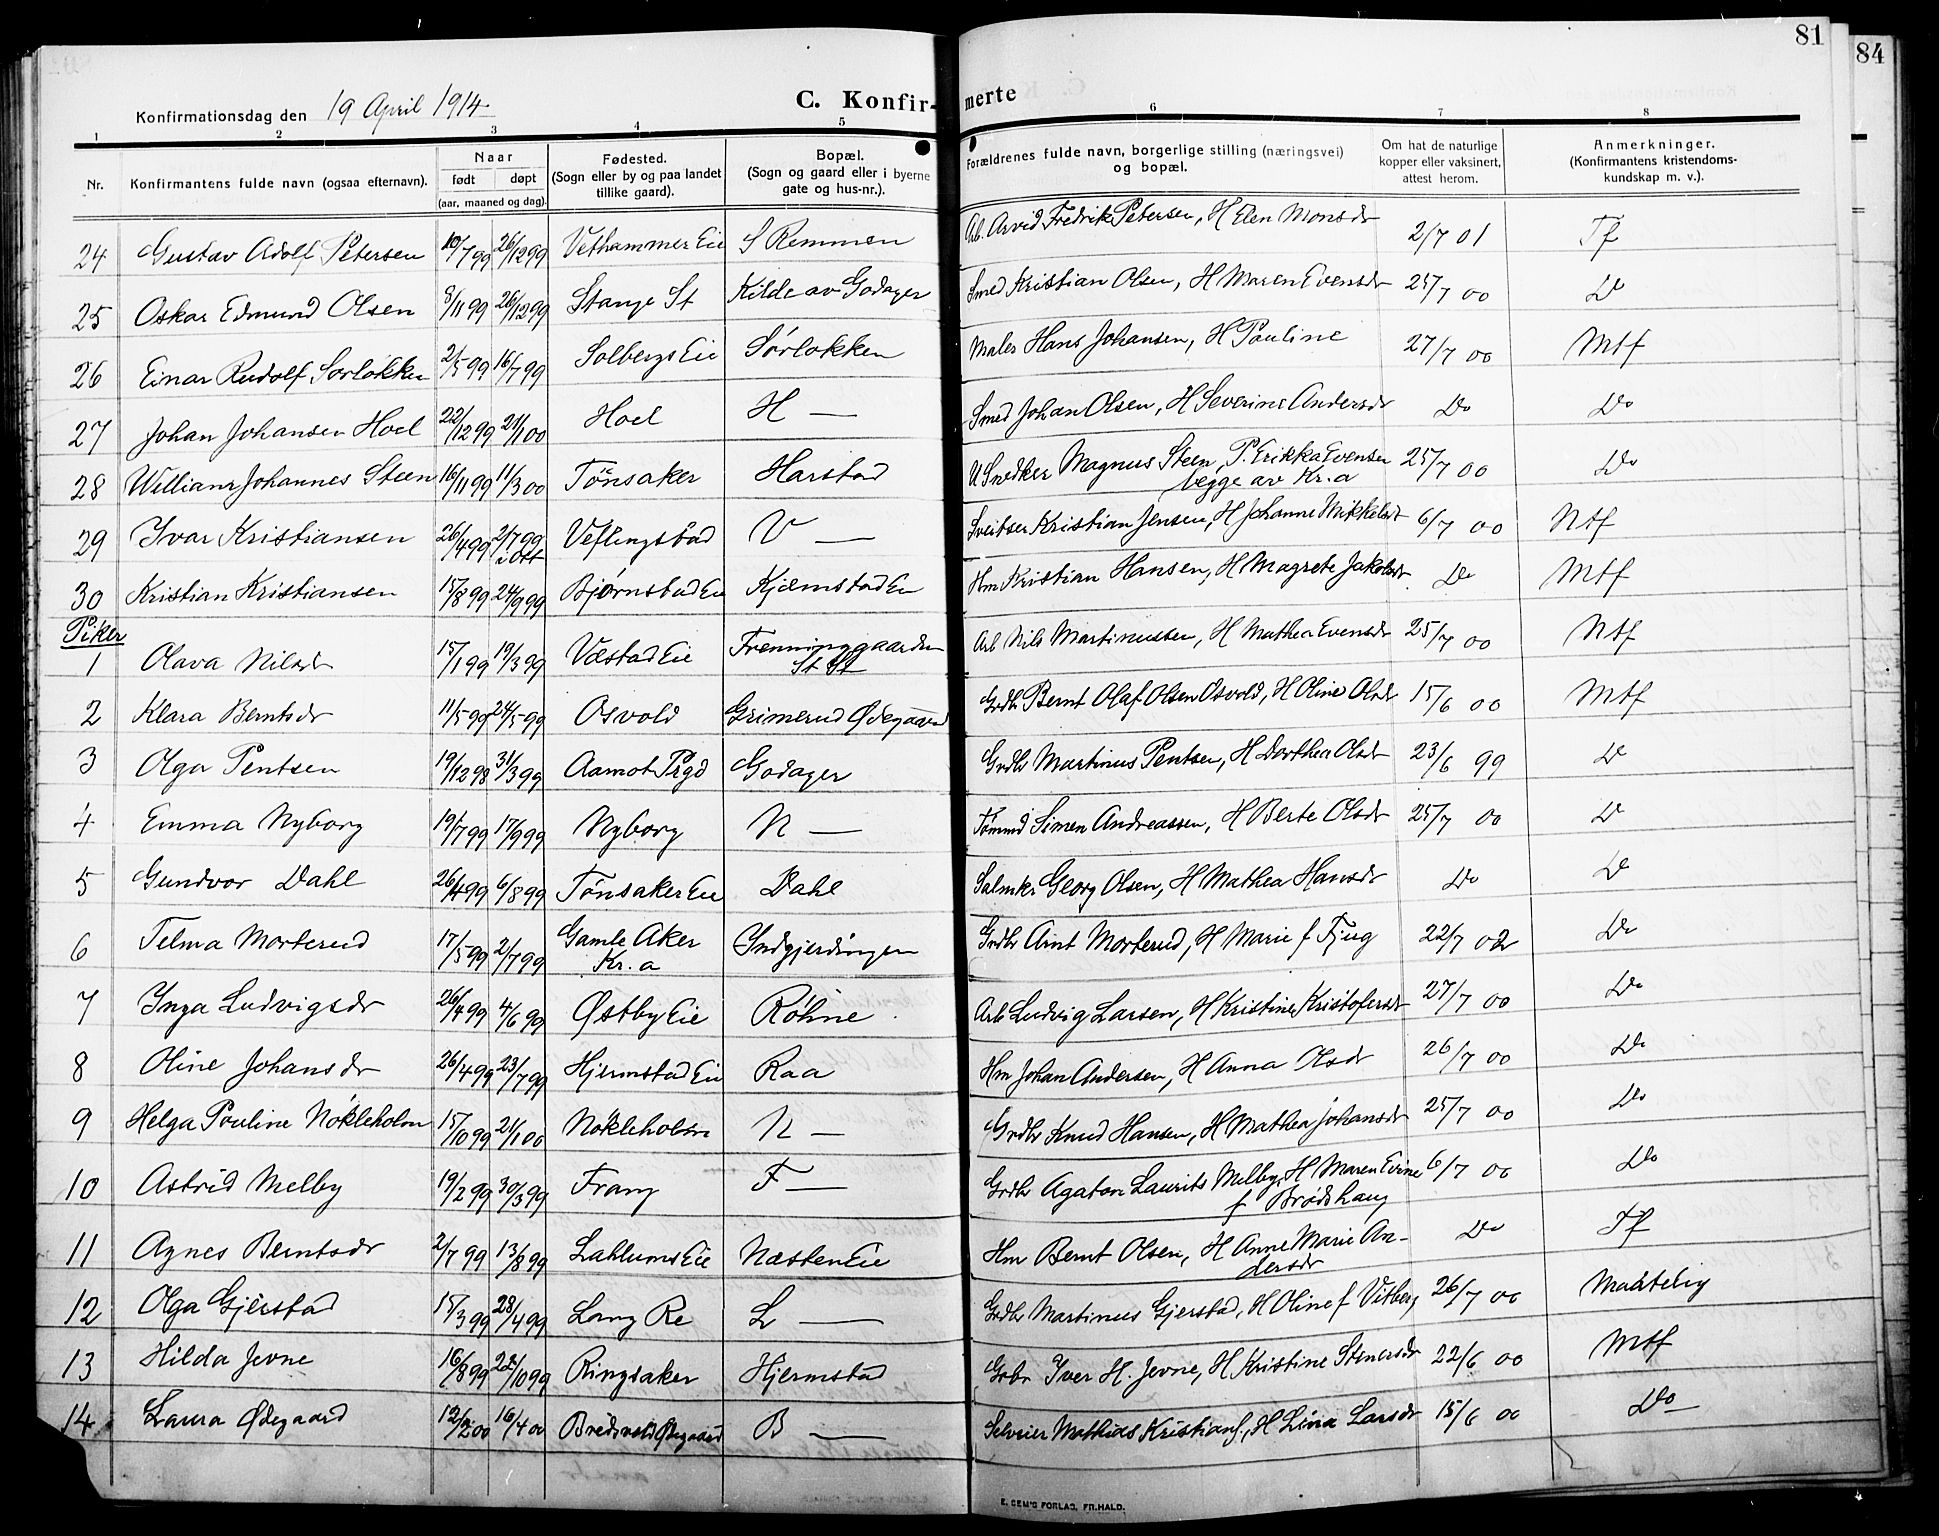 81
84
Konfirmationsdag den 19 April 1914
C. Konfir-
merte
1 2 3 4 5 6 7 8
Nr. Konfirmantens fulde navn (ogsaa efternavn). Naar født døpt (aar, maaned og dag). Fødested. (Sogn eller by og paa landet tillike gaard). Bopæl. (Sogn og gaard eller i byerne gate og hus-nr.). Forældrenes fulde navn, borgerlige stilling (næringsvei) og bopæl. Om hat de naturlige kopper eller vaksinert, attest herom. Anmerkninger. (Konfirmantens kristendoms-kundskap m. v.).
24 Gustav Adolf Petersen 10/7 99 26/12 99 Vethammer Eie S Remmen Arb. Arvid Fredrik Petersen, H Elen Monsdr 2/7 01 Tf
25 Oskar Edmund Olsen 8/11 99 26/12 99 Stange St Kilde av Godager Smed Kristian Olsen, H Maren Evensdr 25/7 00 Do
26 Einar Rudolf Sørløkken 2/5 99 16/7 99 Solbergs Eie Sørløkken Maler Hans Johansen, H Pauline 27/7 00 Mtf
27 Johan Johansen Hoel 22/12 99 21/1 00 Hoel H — Smed Johan Olsen, H Severine Andersdr Do Do
28 William Johannes Steen 16/11 99 11/3 00 Tønsaker Harstad U Snedker Magnus Steen, P. Erikka Evensen
begge av Kr.a 25/7 00 Do
29 Ivar Kristiansen 26/4 99 2/7 99 i Ott Veflingstad V — Sveitser Kristian Jensen, H Johanne Mikkelsdr 6/7 00 Ntf
30 Kristian Kristiansen 15/8 99 24/9 99 Bjørnstad Eie Kjemstad Eie Hm Kristian Hansen, H Magrete Jakobsdr Do Mtf
Piker
1 Olava Nilsdr 15/1 99 19/3 99 Vestad Eie Frenninggaarden
St St Arb Nils Martinussen, H Mathea Evensdr 25/7 00 Ntf
2 Klara Berntsdr 11/5 99 24/5 99 Osvold Grimerud Ødegaard Grdbr Bernt Olaf Olsen Osvold, H Oline Olsdr 15/6 00 Mtf
3 Olga Pentsen 19/12 98 31/3 99 Aamot Prgd Godager Grdbr Martinus Pentsen, H Dorthea Olsdr 23/6 99 Do
4 Emma Nyborg 19/7 99 17/9 99 Nyborg N — Tømmd Simen Andreassen, H Berte Olsdr 25/7 00 Do
5 Gundvor Dahl 26/4 99 6/8 99 Tønsaker Eie Dahl Salmkr Georg Olsen, H Mathea Hansdr Do Do
6 Telma Morterud 17/5 99 2/7 99 Gamle Aker
Kr.a Indgjerdingen Grdbr Arnt Morterud, H Marie f Fjug 22/7 02 Do
7 Inga Ludvigsdr 26/4 99 4/6 99 Østby Eie Røhne Arb Ludvig Larsen, H Kristine Kristofersdr 27/7 00 Do
8 Oline Johansdr 26/4 99 23/7 99 Hjermstad Eie Raa Hm Johan Andersen, H Anna Olsdr 26/7 00 Do
9 Helga Pauline Nøkleholm 15/10 99 21/1 00 Nøkleholm N — Grdbr Knud Hansen, H Mathea Johansdr 25/7 00 Do
10 Astrid Melby 19/2 99 30/3 99 Frang F — Grdbr Agaton Laurits Melby, H Maren Evine
f Brødshaug 6/7 00 Do
11 Agnes Berntsdr 2/7 99 13/8 99 Lahlums Eie Næsten Eie Hm Bernt Olsen, H Anne Marie An-
dersdr Do Tf
12 Olga Gjerstad 15/3 99 28/4 99 Lang Re L — Grdbr Martinus Gjerstad, H Oline f Vitberg 26/7 00 Maatelig
13 Hilda Jevne 16/8 99 22/10 99 Ringsaker Hjermstad Grbr Iver H. Jevne, H Kristine Stenersdr 22/6 00 Mtf
14 Laura Ødegaard 12/2 00 16/4 00 Bredsvold Ødegaard B — Selveier Mathias Kristians., H Lina Larsdr 15/6 00 Do
E. SEM'S FORLAG, FR.HALD.